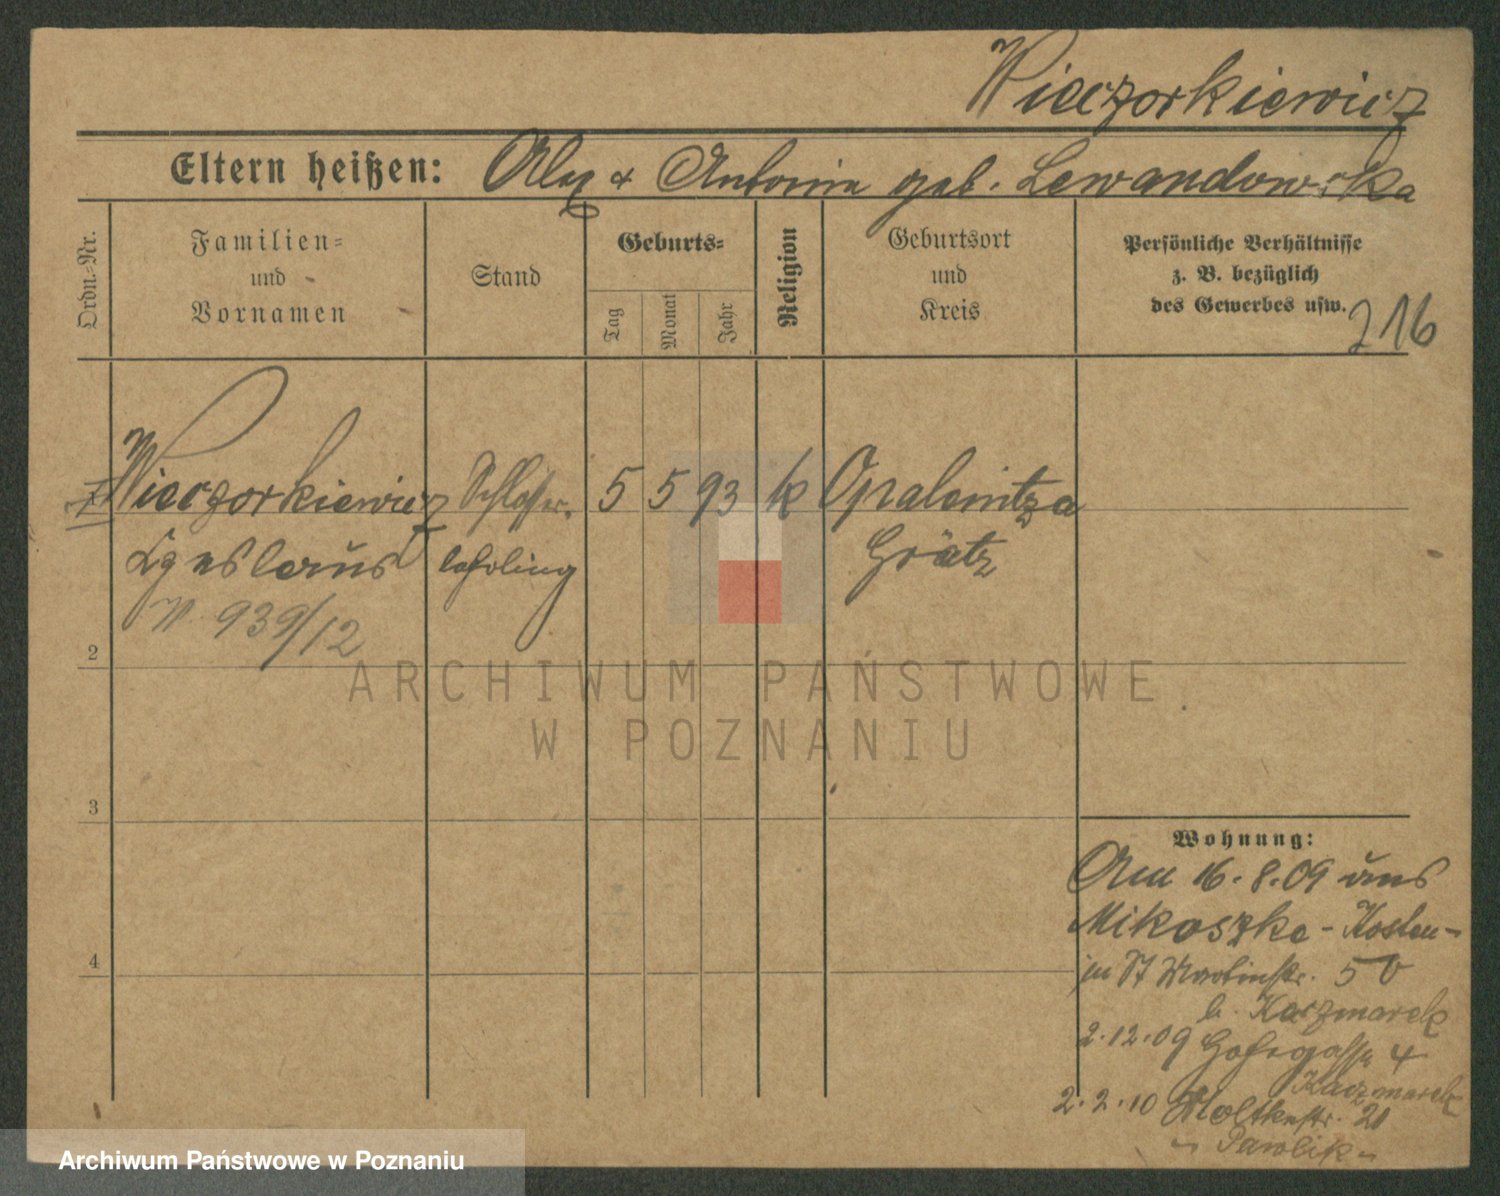 Wieczorkiewicz
Eltern heißen: Alex & Antonia geb. Lewandowska
Ordn.-Nr.
Familien-
und
Vornamen
Stand
Geburts-
Tag
Monat
Jahr
Religion
Geburtsort
und
Kreis
Persönliche Verhältnisse
z. B. bezüglich
des Gewerbes usw.
216
1 Wieczorkiewicz Schlosser- 5 5 93 k Opalenitza
lehrling Grätz
939/12
2
3
4
Wohnung:
Am 16.8.09 aus
Mikoszke - Kosten -
in St Martinstr. 50
b. Kaczmarek
2.12.09 4
Kaczmarek
2.2.10 Moltkestr. 21
Pawlik
ARCHIWUM PAŃSTWOWE
W POZNANIU
Archiwum Państwowe w Poznaniu